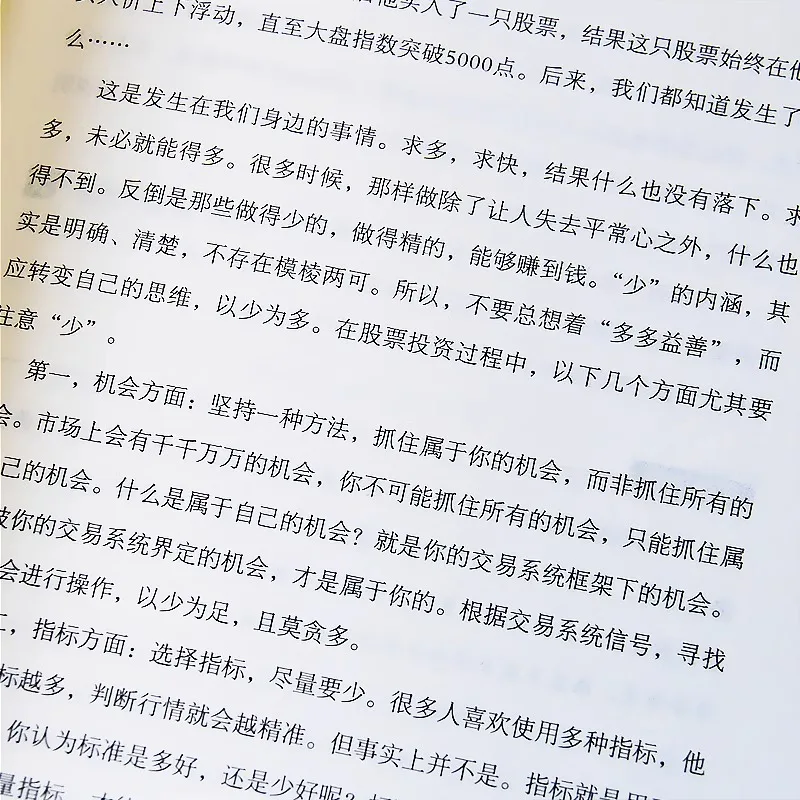 买入了一只股票，结果这只股票始终在他
价上下浮动，直至大盘指数突破5000点。后来，我们都知道发生了
么……
这是发生在我们身边的事情。求多，求快，结果什么也没有落下。求
多，未必就能得多。很多时候，那样做除了让人失去平常心之外，什么也
得不到。反倒是那些做得少的，做得精的，能够赚到钱。“少”的内涵，其
实是明确、清楚，不存在模棱两可。所以，不要总想着“多多益善”，而
应转变自己的思维，以少为多。在股票投资过程中，以下几个方面尤其要
注意“少”。
第一，机会方面：坚持一种方法，抓住属于你的机会，而非抓住所有的
会。市场上会有千千万万的机会，你不可能抓住所有的机会，只能抓住属
己的机会。什么是属于自己的机会？就是你的交易系统框架下的机会。
被你的交易系统界定的机会，才是属于你的。根据交易系统信号，寻找
会进行操作，以少为足，且莫贪多。
二，指标方面：选择指标，尽量要少。很多人喜欢使用多种指标，他
标越多，判断行情就会越精准。但事实上并不是。指标就是用
你认为标准是多好，还是少好呢？
量指标，